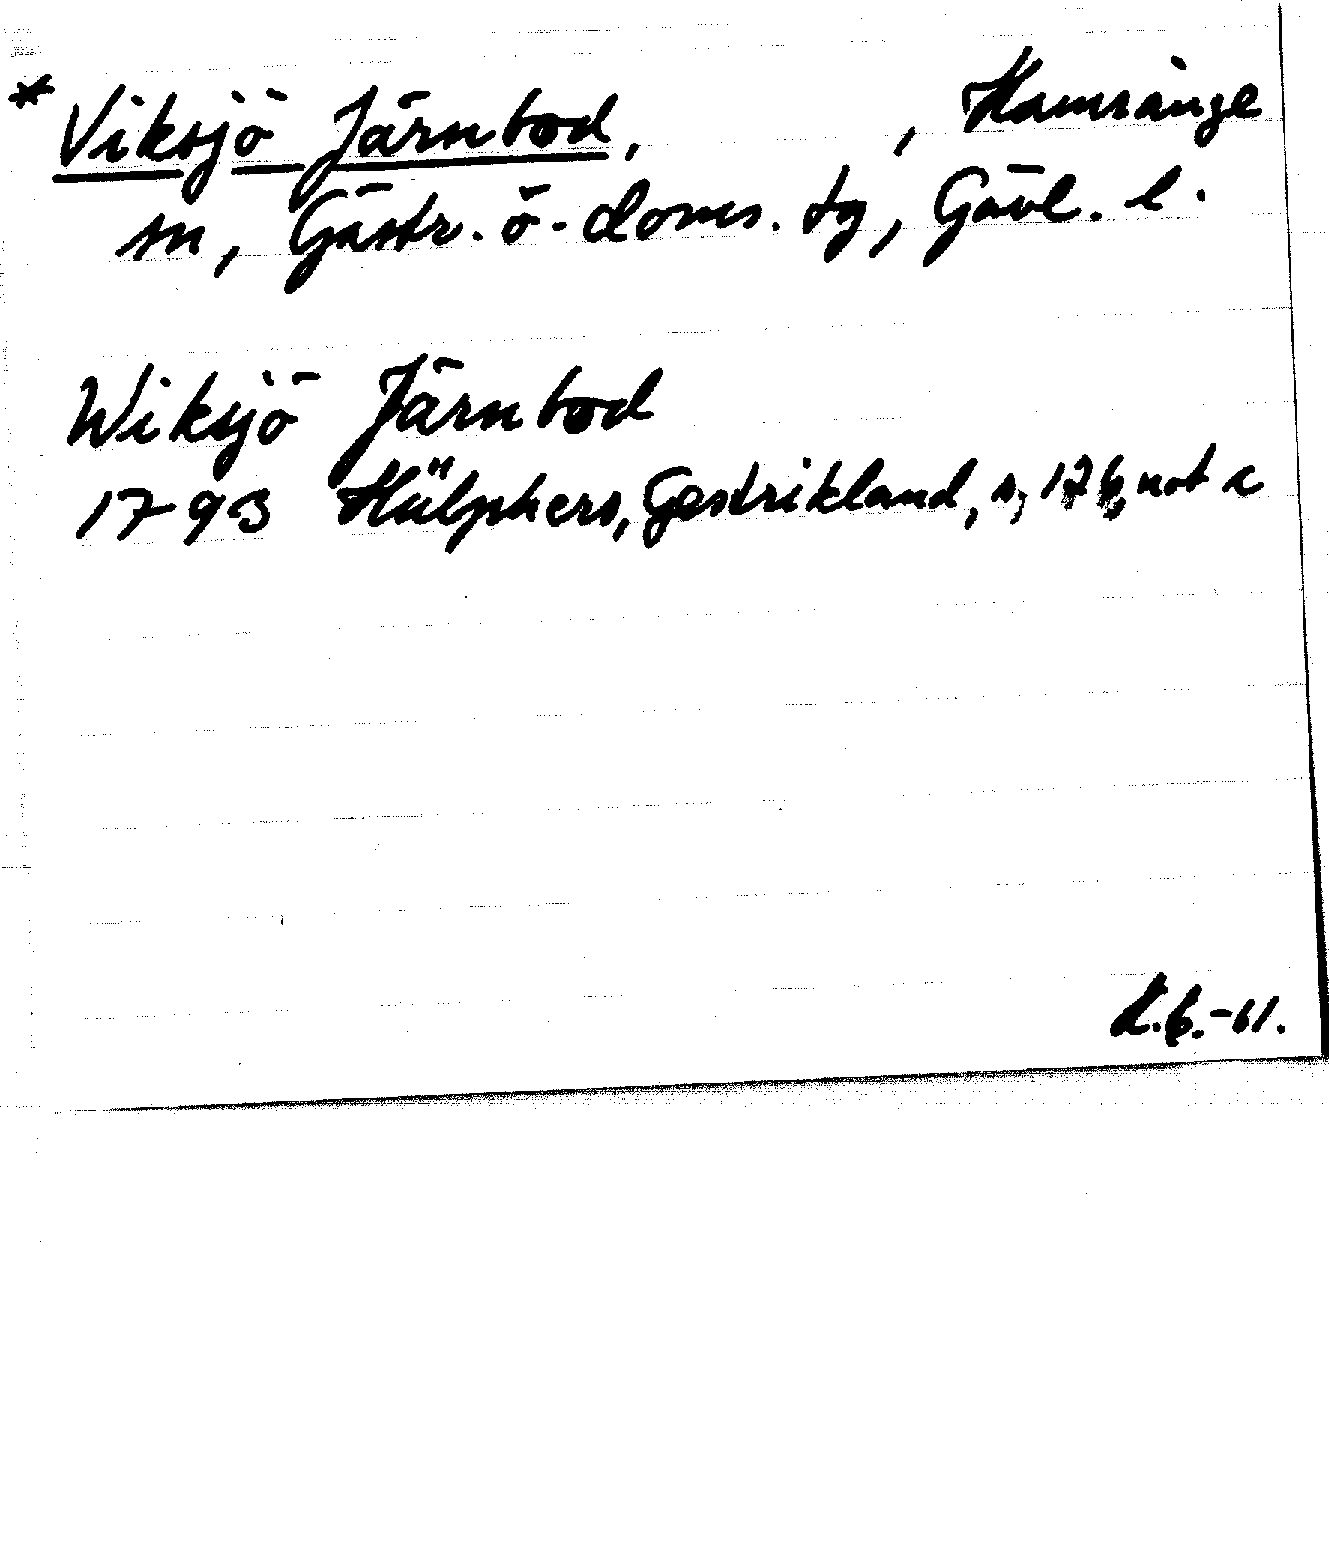 * Viksjö Järnbod, , Hamrånge
sn, Gästr. ö. doms. tg, Gävl. l.
Wiksjö Järnbod
1793 Hülphers, Gestrikland, s, 176, not c
6.-61.